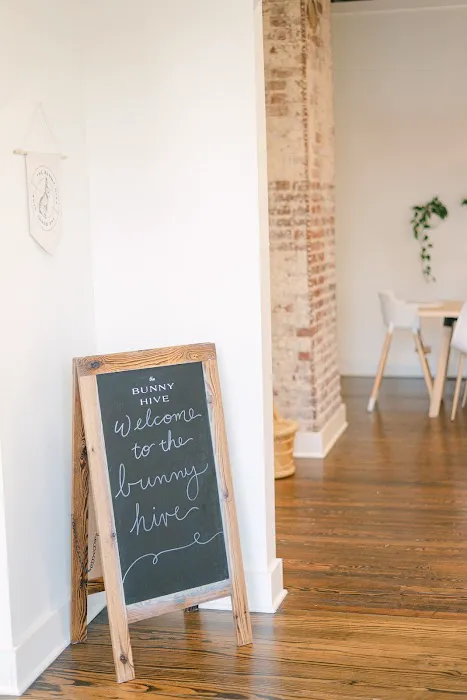 the
BUNNY
HIVE
Welcome
to the
bunny
hive